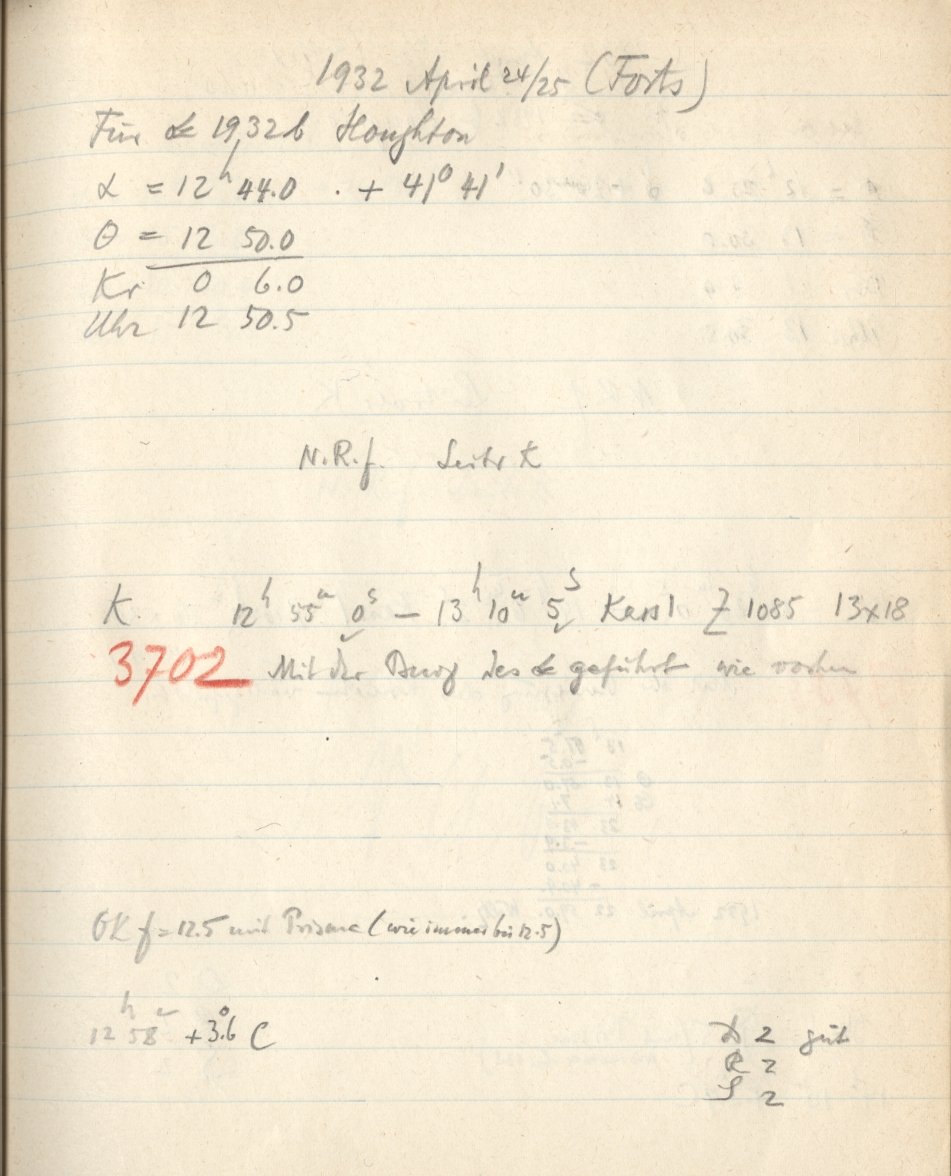 1932 April 24/25 (Forts)
Für ☄ 1932b Houghton
α = 12h 44.0 . + 41° 41'
θ = 12 50.0
Kr 0 6.0
Uhr 12 50.5
N.R.f. Seite K
K. 12h 55m 0s — 13h 10m 5s Kass 1 Z 1085 13x18
3702 Mit der Bewg des ☄ geführt wie vorher
OK f=12.5 mit Prisma (wie immer bei 12.5)
12h 58m +3.°6 C
D 2 gut
R 2
S 2